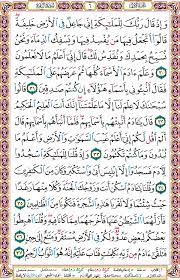 وَإِذْ قَالَ رَبُّكَ لِلْمَلَٰٓئِكَةِ إِنِّي جَاعِلٌ فِي ٱلْأَرْضِ خَلِيفَةً
قَالُوٓا۟ أَتَجْعَلُ فِيهَا مَن يُفْسِدُ فِيهَا وَيَسْفِكُ ٱلدِّمَآءَ وَنَحْنُ
نُسَبِّحُ بِحَمْدِكَ وَنُقَدِّسُ لَكَ قَالَ إِنِّيٓ أَعْلَمُ مَا لَا تَعْلَمُونَ
٣٠ وَعَلَّمَ ءَادَمَ ٱلْأَسْمَآءَ كُلَّهَا ثُمَّ عَرَضَهُمْ عَلَى ٱلْمَلَٰٓئِكَةِ
فَقَالَ أَنۢبِـُٔونِي بِأَسْمَآءِ هَٰٓؤُلَآءِ إِن كُنتُمْ صَٰدِقِينَ ٣١
قَالُوا۟ سُبْحَٰنَكَ لَا عِلْمَ لَنَآ إِلَّا مَا عَلَّمْتَنَآ إِنَّكَ أَنتَ ٱلْعَلِيمُ ٱلْحَكِيمُ ٣٢
قَالَ يَٰٓـَٔادَمُ أَنۢبِئْهُم بِأَسْمَآئِهِمْ فَلَمَّآ أَنۢبَأَهُم بِأَسْمَآئِهِمْ قَالَ
أَلَمْ أَقُل لَّكُمْ إِنِّيٓ أَعْلَمُ غَيْبَ ٱلسَّمَٰوَٰتِ وَٱلْأَرْضِ وَأَعْلَمُ مَا
تُبْدُونَ وَمَا كُنتُمْ تَكْتُمُونَ ٣٣ وَإِذْ قُلْنَا لِلْمَلَٰٓئِكَةِ ٱسْجُدُوا۟ لِـَٔادَمَ
فَسَجَدُوٓا۟ إِلَّآ إِبْلِيسَ أَبَىٰ وَٱسْتَكْبَرَ وَكَانَ مِنَ ٱلْكَٰفِرِينَ ٣٤
وَقُلْنَا يَٰٓـَٔادَمُ ٱسْكُنْ أَنتَ وَزَوْجُكَ ٱلْجَنَّةَ وَكُلَا مِنْهَا رَغَدًا
حَيْثُ شِئْتُمَا وَلَا تَقْرَبَا هَٰذِهِ ٱلشَّجَرَةَ فَتَكُونَا مِنَ ٱلظَّٰلِمِينَ ٣٥
فَأَزَلَّهُمَا ٱلشَّيْطَٰنُ عَنْهَا فَأَخْرَجَهُمَا مِمَّا كَانَا فِيهِ وَقُلْنَا ٱهْبِطُوا۟
بَعْضُكُمْ لِبَعْضٍ عَدُوٌّ وَلَكُمْ فِي ٱلْأَرْضِ مُسْتَقَرٌّ وَمَتَٰعٌ إِلَىٰ حِينٍ ٣٦
فَتَلَقَّىٰٓ ءَادَمُ مِن رَّبِّهِۦ كَلِمَٰتٍ فَتَابَ عَلَيْهِ إِنَّهُۥ هُوَ ٱلتَّوَّابُ ٱلرَّحِيمُ ٣٧